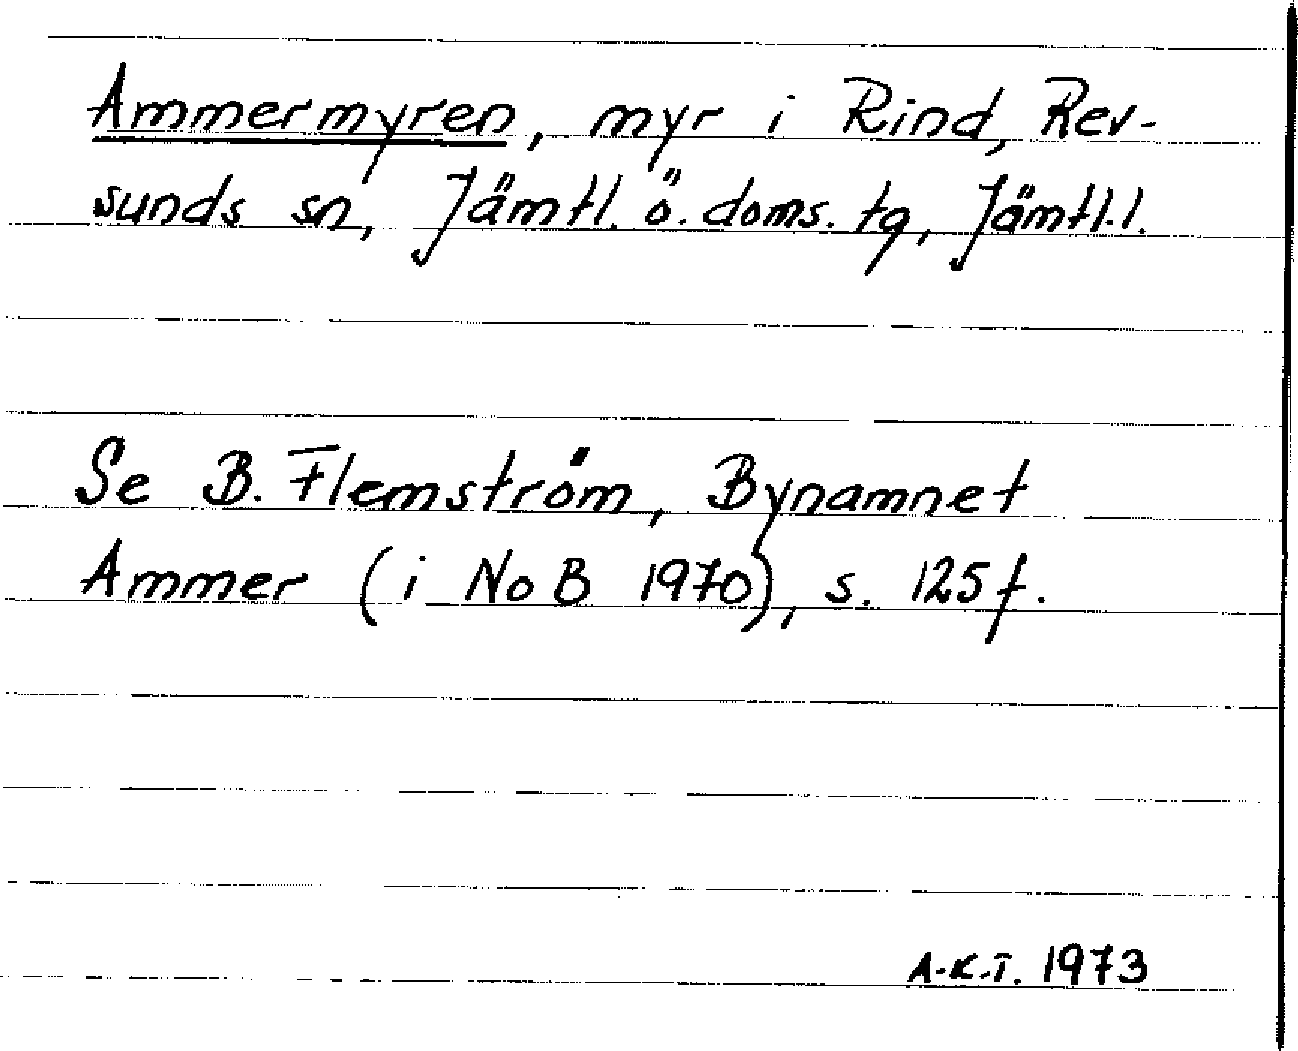 Ammermyren, myr i Rind, Rev-
sunds sn, Jämtl. ö. doms. tg, Jämtl.l.
Se B. Flemström, Bynamnet
Ammer (i NoB 1970), s. 125 f.
A-K.T. 1973